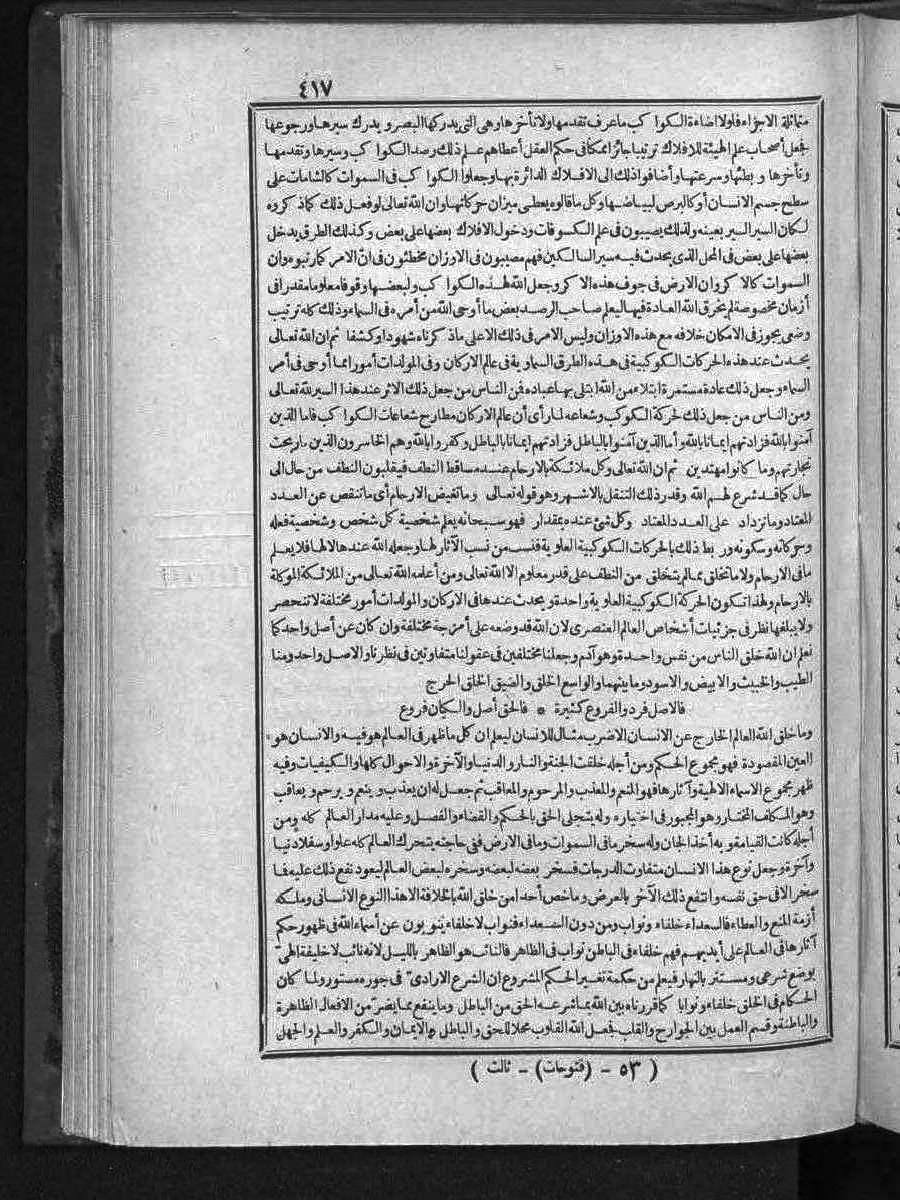 ٤١٧
متماثلة الاجزاء فلولا اضاءة الكوا كب ما عرف تقدمها ولا تأخرها وهى التى يدركها البصر ويدرك سيرها ورجوعها
فجعل أصحاب علم الهيئة للافلاك ترتيبا جائزا ممكنا فى حكم العقل أعطاهم علم ذلك رصد الكوا كب وسيرها وتقدمها
وتأخرها وبطئها وسرعتها وأضافوا ذلك الى الافلاك الدائرة بها وجعلوا الكوا كب فى السموات كالشامات على
سطح جسم الانسان أو كالبرص لبياضها وكل ما قالوه يعطى ميزان حركاتها وان الله تعالى لو فعل ذلك كما ذكروه
لكان السير السير بعينه ولذلك يصيبون فى علم الكسوفات ودخول الافلاك بعضها على بعض وكذلك الطرق يدخل
بعضها على بعض فى المحل الذى يحدث فيه سير السالكين فهم مصيبون فى الاوزان مخطئون فى انّ الامر كما رتبوه وان
السموات كالاكر وان الارض فى جوف هذه الاكر وجعل الله لهذه الكوا كب ولبعضها وقوفا معلوما مقدرا فى
أزمان مخصوصة لم يخرق الله العادة فيها ليعلم صاحب الرصد بعض ما أوحى الله من أمره فى السماء وذلك كله ترتيب
وضعى يجوز فى الامكان خلافه مع هذه الاوزان وليس الامر فى ذلك الا على ما ذكرناه شهودا وكشفا ثم ان الله تعالى
يحدث عند هذه الحركات الكوكبية فى هذه الطرق السماوية فى عالم الاركان وفى المولدات أمورا مما أوحى فى أمر
السماء وجعل ذلك عادة مستمرة ابتلاء من الله ابتلى بها عباده فمن الناس من جعل ذلك الاثر عند هذا السير لله تعالى
ومن الناس من جعل ذلك لحركة الكوكب وشعاعه لما رأى أن عالم الاركان مطارح شعاعات الكوا كب فاما الذين
آمنوا بالله فزادتهم ايمانا بالله وأما الذين آمنوا بالباطل فزادتهم ايمانا بالباطل وكفروا بالله وهم الخاسرون الذين ما ربحت
تجارتهم وما كانوا مهتدين ثم ان الله تعالى وكل ملائكة بالارحام عند مساقط النطف فيقلبون النطف من حال الى
حال كما قد شرع لهم الله وقدر ذلك التنقل بالاشهر وهو قوله تعالى وما تغيض الارحام أى ما تنقص عن العدد
المعتاد وما تزداد على العدد المعتاد وكل شئ عنده بمقدار فهو سبحانه يعلم شخصية كل شخص وشخصية فعله
وحركاته وسكونه وربط ذلك بالحركات الكوكبية العلوية فنسب من نسب الآثار لها وجعله الله عندها لا لها فلا يعلم
ما فى الارحام ولا ما تخلق مما لم يتخلق من النطف على قدر معلوم الا الله تعالى ومن أعلمه الله تعالى من الملائكة الموكلة
بالارحام ولهذا تكون الحركة الكوكبية العلوية واحدة ويحدث عندها فى الاركان والمولدات أمور مختلفة لا تنحصر
ولا يبلغها نظر فى جزئيات أشخاص العالم العنصرى لان الله قد وضعه على أمزجة مختلفة وان كان عن أصل واحد كما
نعلم ان الله خلق الناس من نفس واحدة وهو آدم وجعلنا مختلفين فى عقولنا متفاوتين فى نظرنا والاصل واحد ومنا
الطيب والخبيث والابيض والاسود وما بينهما والواسع الخلق والضيق الخلق الحرج
فالاصل فرد والفروع كثيرة * فالحق أصل والكيان فروع
وما خلق الله العالم الخارج عن الانسان الا ضرب مثال للانسان ليعلم ان كل ما ظهر فى العالم هو فيه والانسان هو
العين المقصودة فهو مجموع الحكم ومن أجله خلقت الجنة والنار والدنيا والآخرة والاحوال كلها والكيفيات وفيه
ظهر مجموع الاسماء الالهية وآثارها فهو المنعم والمعذب والمرحوم والمعاقب ثم جعل له ان يعذب وينعم ويرحم ويعاقب
وهو المكلف المختار وهو المجبور فى اختياره وله يتجلى الحق بالحكم والقضاء والفصل وعليه مدار العالم كله ومن
أجله كانت القيامة وبه أخذ الجان وله سخر ما فى السموات وما فى الارض ففى حاجته يتحرك العالم كله علوا وسفلا دنيا
وآخرة وجعل نوع هذا الانسان متفاوت الدرجات فسخر بعضه لبعضه وسخره لبعض العالم ليعود نفع ذلك عليه فما
سخر الا فى حق نفسه وانتفع ذلك الآخر بالعرض وما خص أحدا من خلق الله بالخلافة الا هذا النوع الانسانى وملكه
أزمة المنع والعطاء فالسعداء خلفاء ونواب ومن دون السعداء فنواب لا خلفاء ينوبون عن أسماء الله فى ظهور حكم
آثارها فى العالم على أيديهم فهم خلفاء فى الباطن نواب فى الظاهر فالنائب هو الظاهر بالليل لانه نائب لا خليفة الهى
بوضع شرعى ومستتر بالنهار فيعلم من حكمة تغيير الحكم المشروع ان الشرع الارادىّ فى جوره مستور ولما كان
الحكام فى الخلق خلفاء ونوابا كما قررناه بين الله بما شرعه الحق من الباطل وما ينفع مما يضرّ من الافعال الظاهرة
والباطنة وقسم العمل بين الجوارح والقلب فجعل الله القلوب محلا للحق والباطل والايمان والكفر والعلم والجهل
( ٥٣ - (فتوحات) - ثالث )